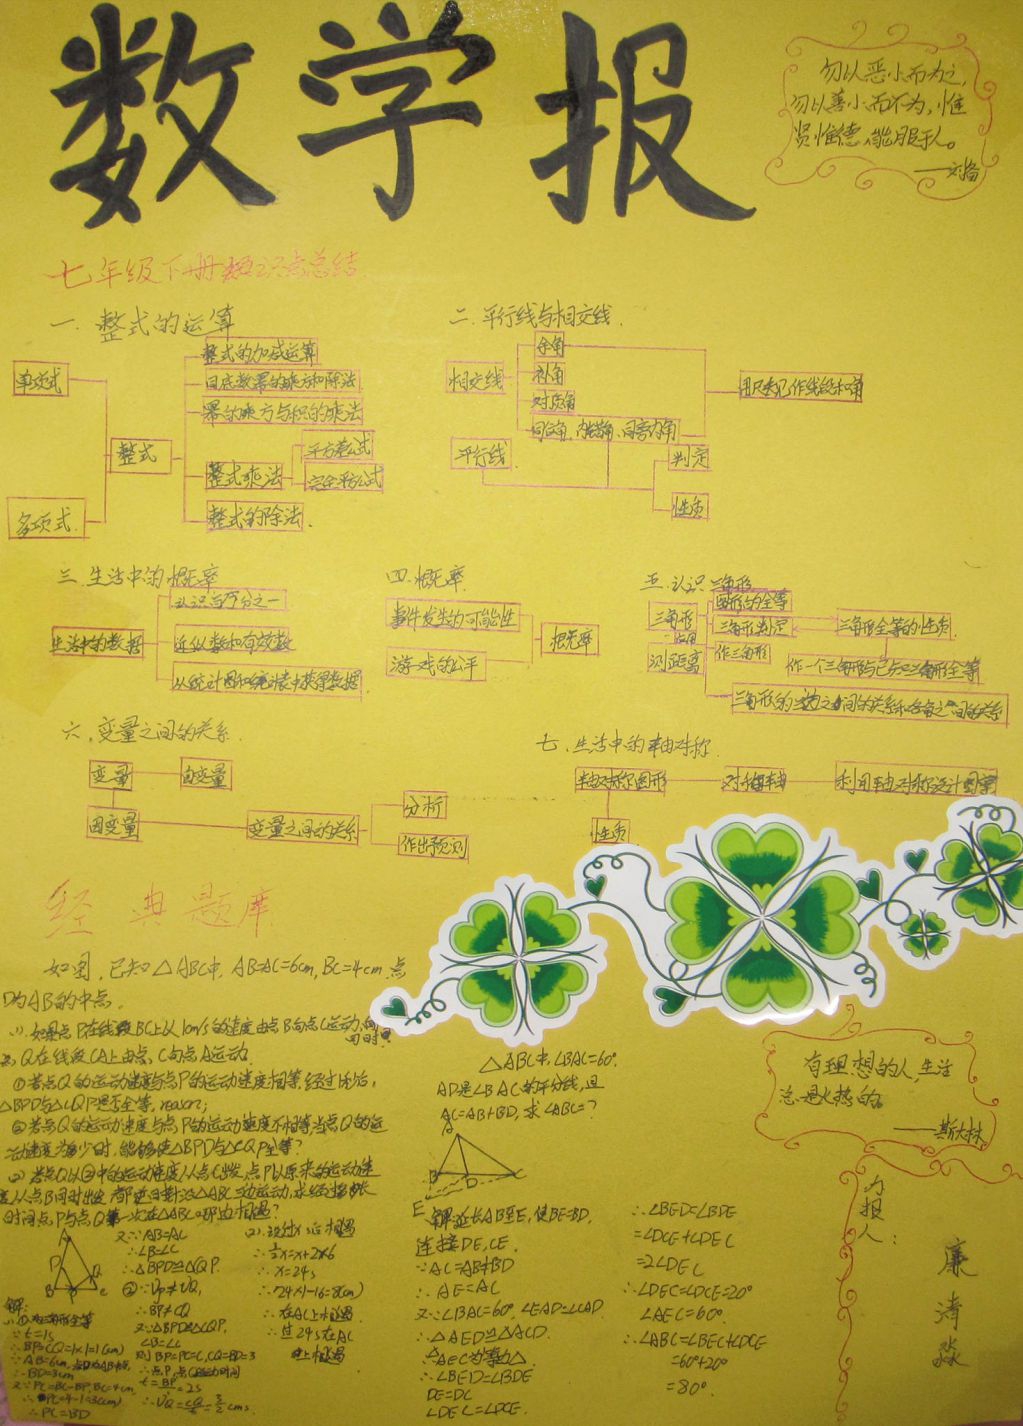 数学报
勿以恶小而为之,
勿以善小而不为,惟
贤惟德,能服于人。
——刘备
七年级下册知识点总结
一.整式的运算
单项式
多项式
整式
整式的加减运算
同底数幂的乘方和除法
幂的乘方与积的乘法
整式乘法
平方差公式
完全平方公式
整式的除法
二.平行线与相交线
相交线
余角
补角
对顶角
同位角、内错角、同旁内角
用尺规作线段和角
平行线
判定
性质
三.生活中的概率
生活中的数据
认识百万分之一
近似数和有效数
从统计图和统计表中获得数据
四.概率
事件发生的可能性
游戏的公平
概率
五.认识三角形
三角形
测距离
图形的全等
三角形判定
作三角形
三角形全等的性质
作一个三角形与已知三角形全等
三角形的三边之间的关系和各角之间的关系
六.变量之间的关系
变量
自变量
因变量
变量之间的关系
分析
作出预测
七.生活中的轴对称
轴对称图形
对称轴
利用轴对称设计图案
性质
经典题库
如图,已知△ABC中,AB=AC=6cm,BC=4cm.点
D为AB的中点.
(1).如果点P在线段BC上以1cm/s的速度由点B向点C运动,同时
点Q在线段CA上由点C向点A运动.
①若点Q的运动速度与点P的运动速度相等,经过1秒后,
△BPD与△CQP是否全等,
②若点Q的运动速度与点P的运动速度不相等,当点Q的运
动速度为多少时,能够使△BPD与△CQP全等?
(2)若点Q以②中的运动速度从点C出发,点P以原来的运动速
度从点B同时出发,都逆时针沿△ABC三边运动,求经过多长
时间点P与点Q第一次在△ABC哪边相遇?
A
D
Q
B P C
解:
∵t=1s
∴BP=CQ=1×1=1(cm)
∵AB=6cm,点D为AB中点
∴BD=3cm
又∵PC=BC-BP,BC=4cm,
∴PC=4-1=3(cm)
∴PC=BD
又∵AB=AC
∴∠B=∠C
∴△BPD≌△CQP.
②∵Vp≠VQ,
∴BP≠CQ
又∵△BPD≌△CQP,
∠B=∠C
则BP=PC=2,CQ=BD=3
∴点P,点Q运动时间
t=BP/1=2s
∴VQ=CQ/t=3/2cm/s
(2).设过x s后相遇
∴3/2x=x+2×6
∴x=24s
∴24×1=16+8(cm)
∴在AC上相遇
∴过24s在AC
上相遇
△ABC中,∠BAC=60°
AD是∠BAC的平分线,且
AC=AB+BD,求∠ABC=?
A
B
D
C
E
解:延长AB至E,使BE=BD,
连接DE,CE.
∵AC=AB+BD
∴AE=AC
又∵∠BAC=60°,∠EAD=∠CAD
∴△AED≌△ACD.
△AEC为等边△.
∴∠BED=∠BDE
DE=DC
∠DEC=∠DCE.
∴∠BED=∠BDE
=∠DCE+∠DEC
=2∠DEC
∴∠DEC=∠DCE=20°
∠AEC=60°
∴∠ABC=∠BEC+∠DCE
=60°+20°
=80°
有理想的人,生活
总是火热的。
——斯大林
办报人:
廉涛淼